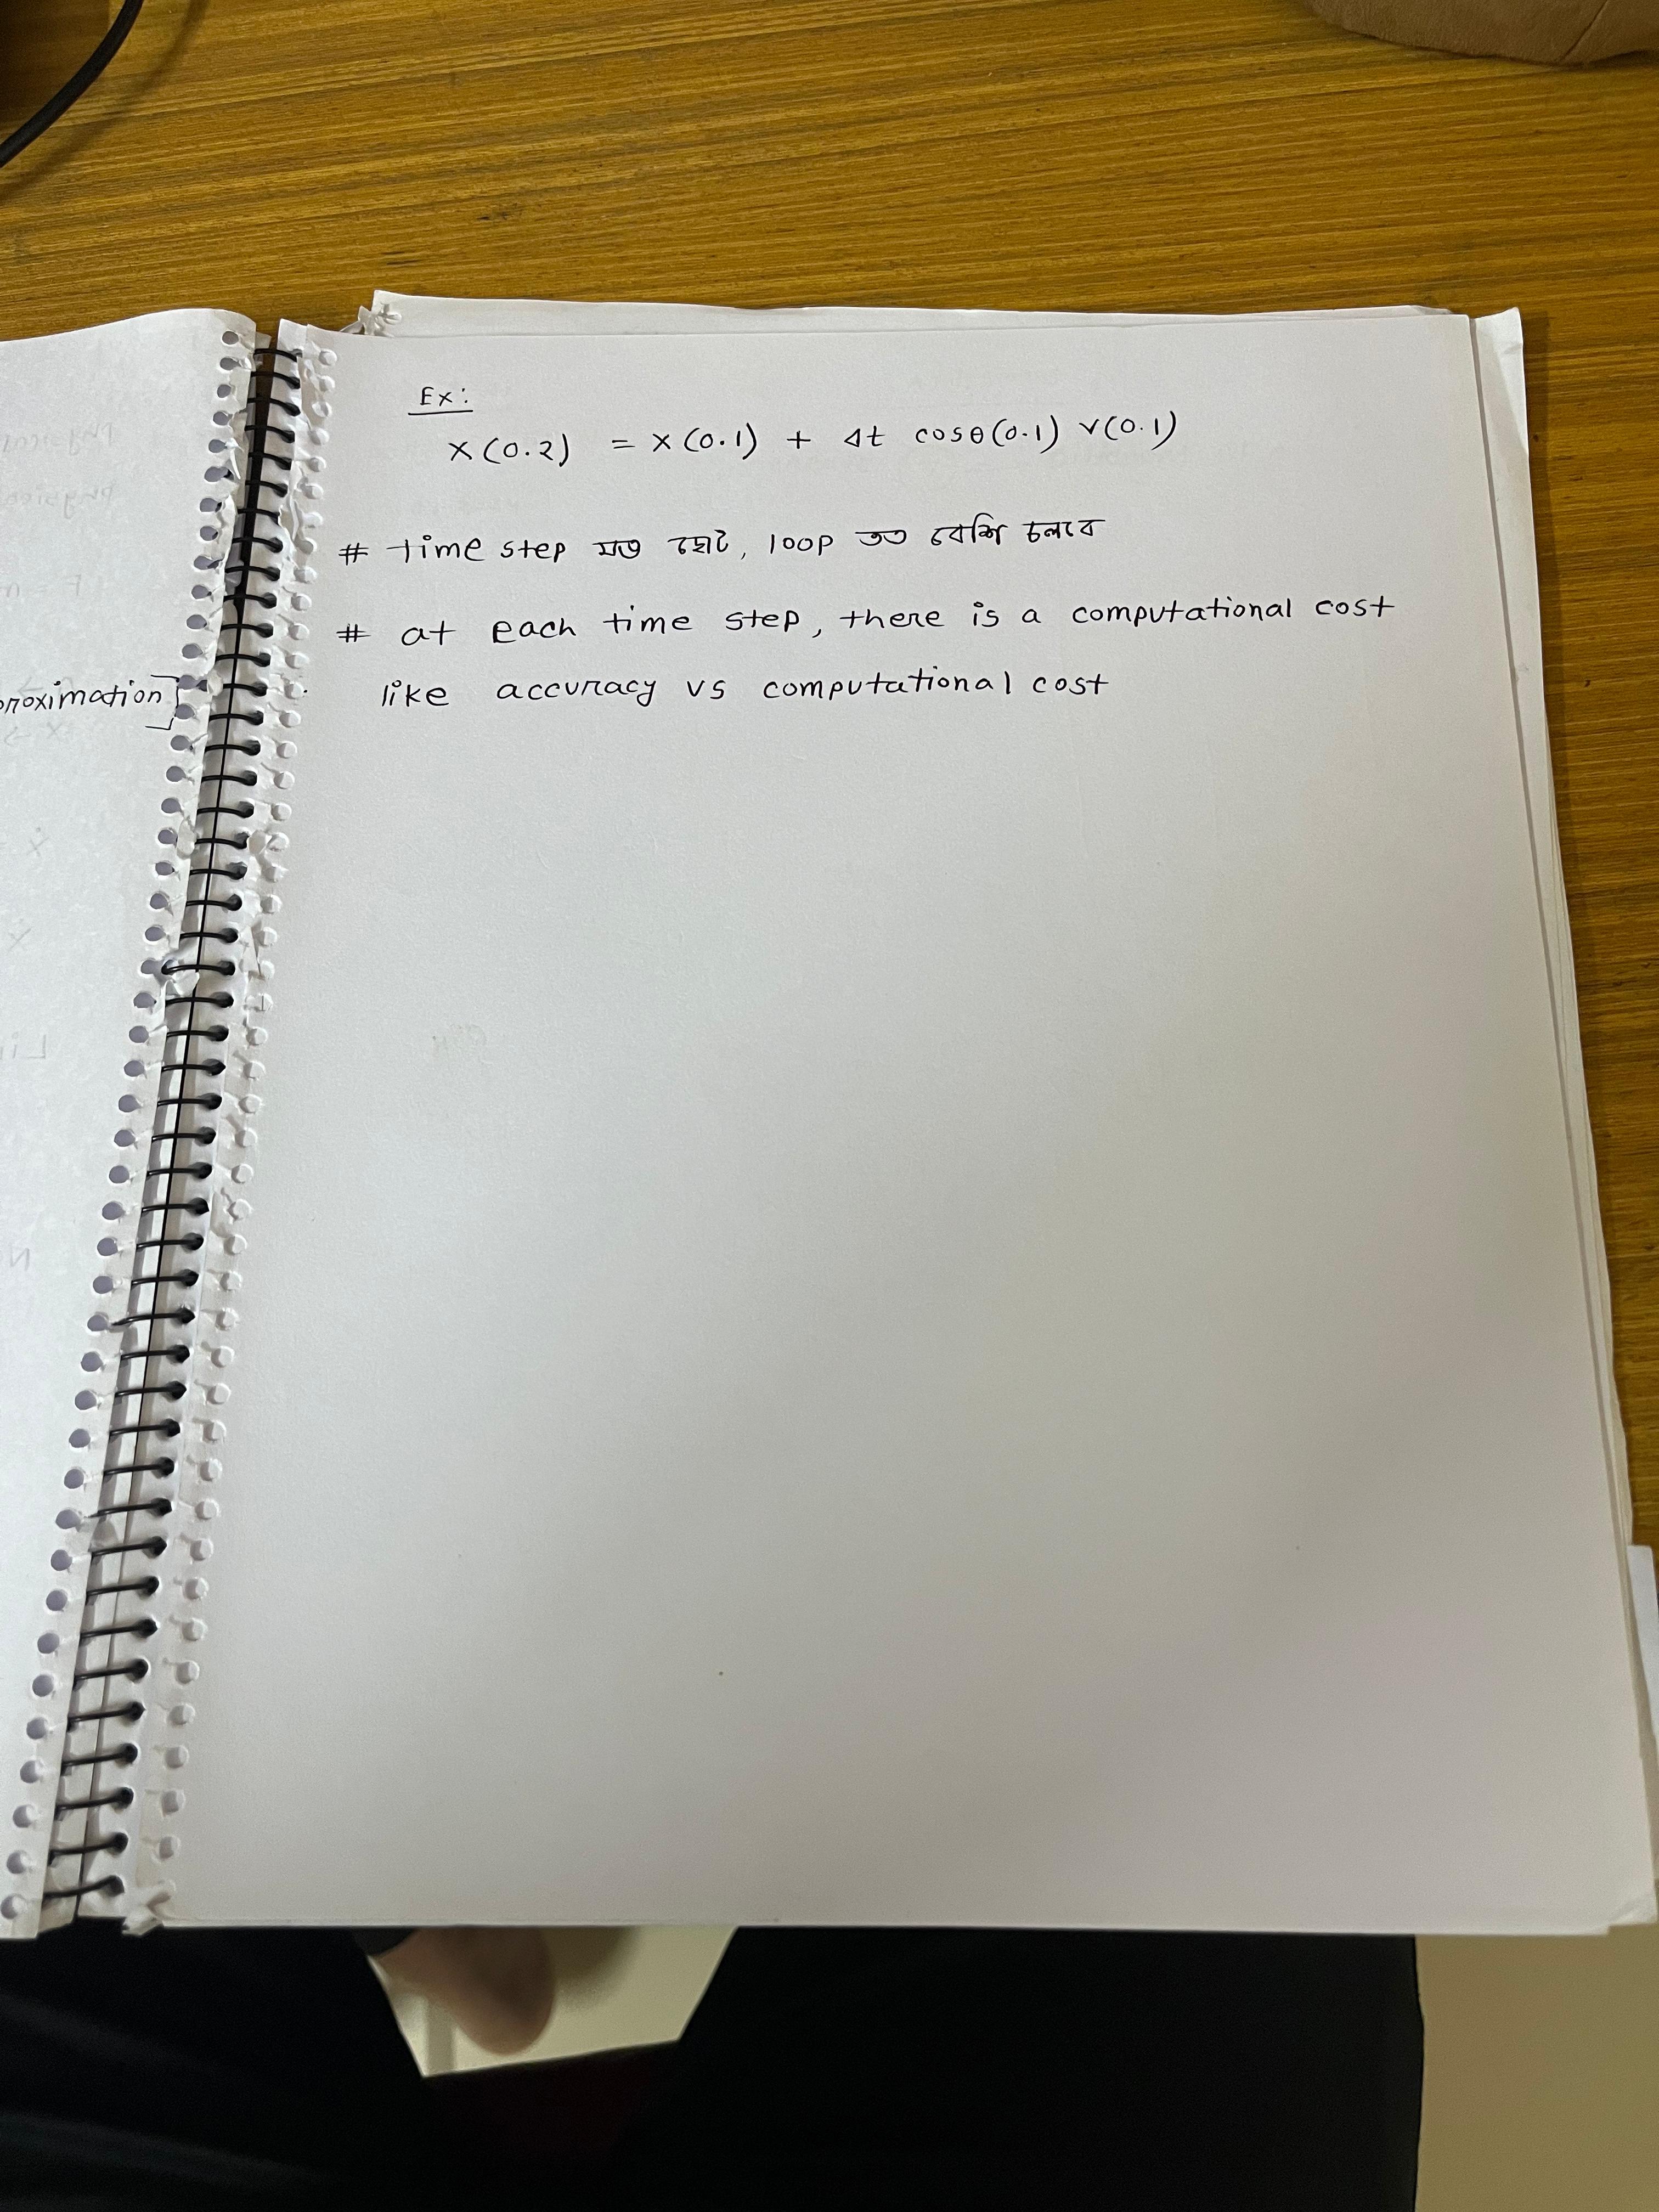 Ex:
x(0.2) = x(0.1) + Δt cosθ(0.1) v(0.1)
# time step যত ছোট, loop তত বেশি চলবে
# at each time step, there is a computational cost
like accuracy vs computational cost
roximation]